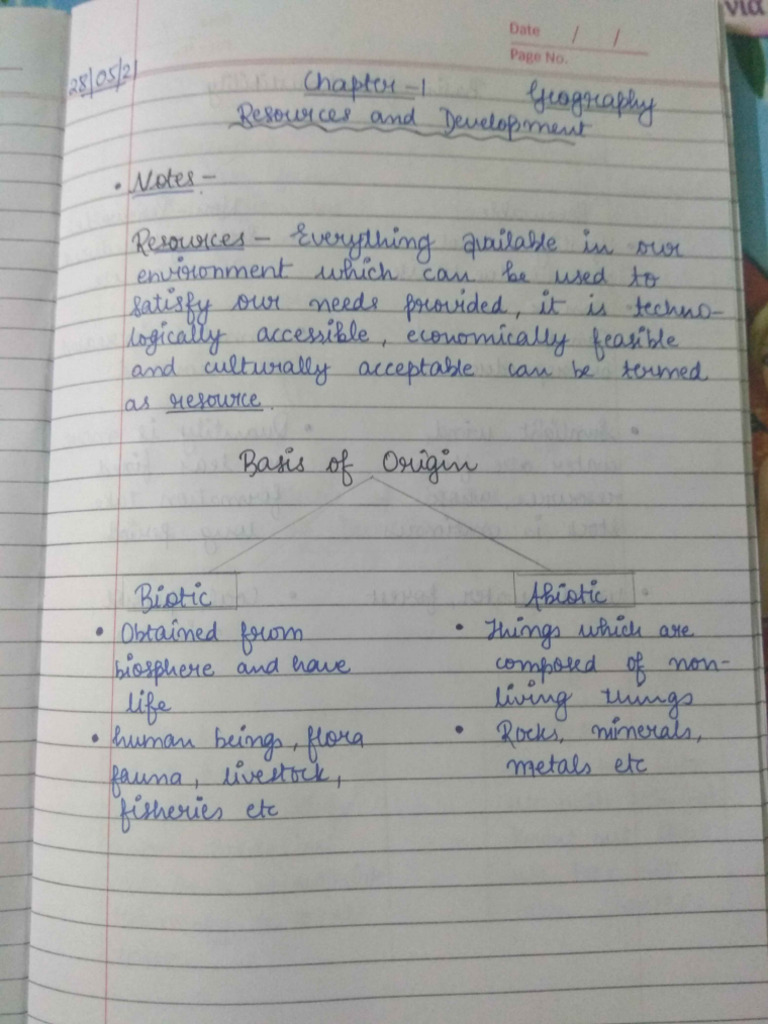 via
Date / /
Page No.
28/05/21
Chapter-1 Geography
Resources and Development
• Notes-
Resources - Everything available in our
environment which can be used to
satisfy our needs provided, it is techno-
logically accessible, economically feasible
and culturally acceptable can be termed
as resource.
Basis of Origin
Biotic
• Obtained from
biosphere and have
life
• human beings, flora
fauna, livestock,
fisheries etc
Abiotic
• Things which are
composed of non-
living things
• Rocks, minerals,
metals etc